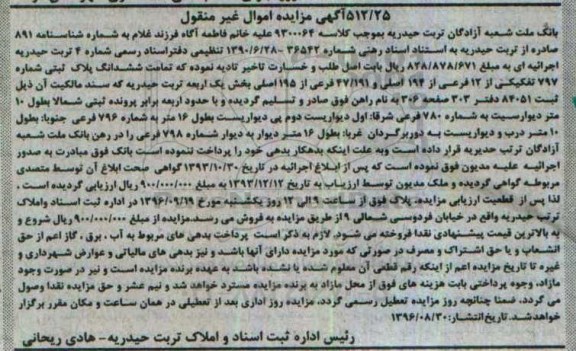 ۵۱۲/۲۵آگهی مزایده اموال غیر منقول
بانک ملت شعبه آزادگان تربت حیدریه بموجب کلاسه ۹۳۰۰۰۶۴ علیه خانم فاطمه آگاه فرزند غلام به شماره شناسنامه ۸۹۱
صادره از تربت حیدریه به استناد اسناد رهنی شماره ۳۶۵۴۲ -۱۳۹۰/۶/۲۸ تنظیمی دفتراسناد رسمی شماره ۴ تربت حیدریه
اجرائیه ای به مبلغ ۸۳۸/۸۷۸/۶۷۱ ریال بابت اصل طلب و خسارت تاخیر تادیه نموده که تمامت ششدانگ پلاک ثبتی شماره
۷۹۷ تفکیکی از ۱۲ فرعی از ۱۹۴ اصلی و ۴۷/۱۹۱ فرعی از ۱۹۵ اصلی بخش یک اربعه تربت حیدریه که سند مالکیت آن ذیل
ثبت ۸۴۰۵۱ دفتر ۳۰۳ صفحه ۳۰۶ به نام راهن فوق صادر و تسلیم گردیده و با حدود اربعه برابر پرونده ثبتی شمالا بطول ۱۰
متر دیواریست به شماره ۷۸۰ فرعی شرقا: اول دیواریست دوم پی دیواریست بطول ۱۶ متر به شماره ۷۹۶ فرعی جنوبا: بطول
۱۰ متر درب و دیواریست به دوربرگردان غربا: بطول ۱۶ متر دیوار به دیوار شماره ۷۹۸ فرعی را در رهن بانک ملت شعبه
آزادگان ترتب حیدریه قرار داده است وبه علت اینکه بدهکار بدهی خود را پرداخت ننموده است بانک فوق مبادرت به صدور
اجرائیه علیه مدیون فوق نموده است که پس از ابلاغ اجرائیه در تاریخ ۱۳۹۳/۱۰/۳۰ گواهی صحت ابلاغ آن توسط متصدی
مربوطه گواهی گردیده و ملک مدیون توسط ارزیاب به تاریخ ۱۳۹۳/۱۲/۱۲ به مبلغ ۹۰۰/۰۰۰/۰۰۰ ریال ارزیابی گردیده است .
لذا پس از قطعیت ارزیابی مزایده، پلاک فوق از ساعت ۹ الی ۱۲ روز یکشنبه مورخ ۱۳۹۶/۰۹/۱۹ در اداره ثبت اسناد واملاک
ترتب حیدریه واقع در خیابان فردوسی شمالی ۹ از طریق مزایده به فروش می رسد.مزایده از مبلغ ۹۰۰/۰۰۰/۰۰۰ ریال شروع و
به بالاترین قیمت پیشنهادی نقدا فروخته می شود. لازم به ذکر است پرداخت بدهی های مربوط به آب ، برق ، گاز اعم از حق
انشعاب و یا حق اشتراک و مصرف در صورتی که مورد مزایده دارای آنها باشد و نیز بدهی های مالیاتی و عوارض شهرداری و
غیره تا تاریخ مزایده اعم از اینکه رقم قطعی آن معلوم شده یا نشده باشد به عهده برنده مزایده است و نیز در صورت وجود
مازاد، وجوه پرداختی بابت هزینه های فوق از محل مازاد به برنده مزایده مسترد خواهد شد و نیم عشر و حق مزایده نقدا وصول
می گردد. ضمنا چنانچه روز مزایده تعطیل رسمی گردد، مزایده روز اداری بعد از تعطیلی در همان ساعت و مکان مقرر برگزار
خواهدشد. تاریخ انتشار: ۱۳۹۶/۰۸/۳۰
رئیس اداره ثبت اسناد و املاک تربت حیدریه- هادی ریحانی